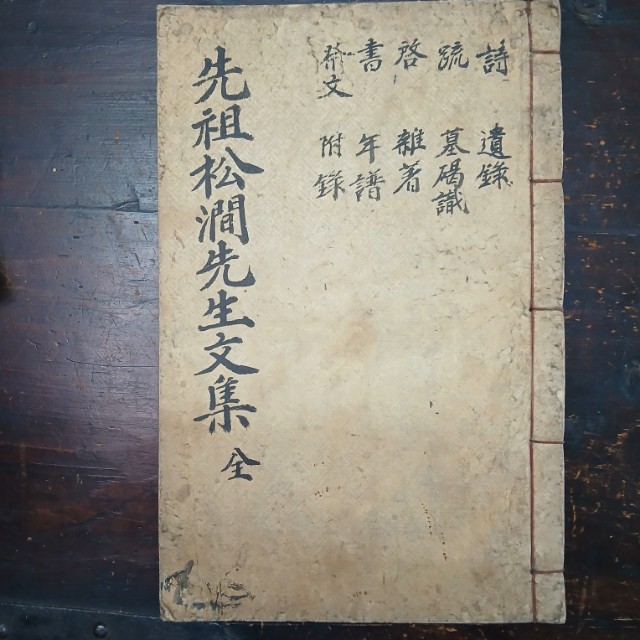 詩 遺錄
疏 墓碣識
啓 雜著
書 年譜
祭文 附錄
先祖松澗先生文集 全